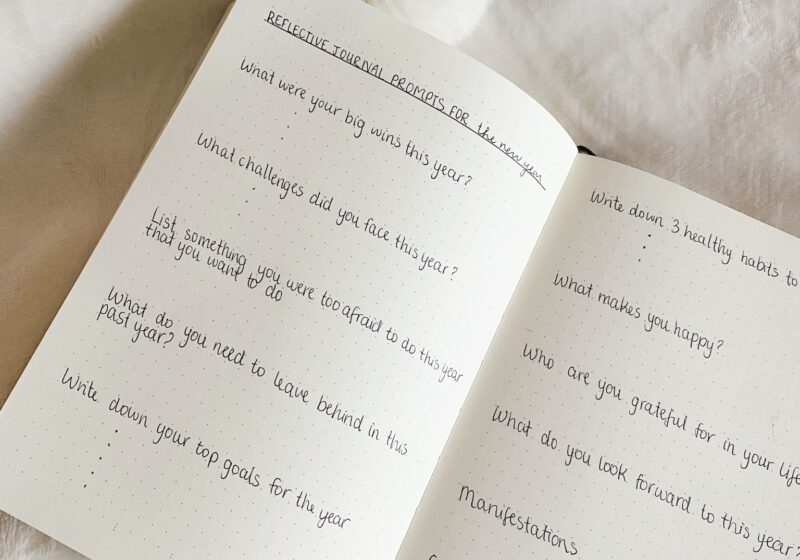 REFLECTIVE JOURNAL PROMPTS FOR the new year
What were your big wins this year?
What challenges did you face this year?
List something you were too afraid to do this year
that you want to do
What do you need to leave behind in this
past year?
Write down your top goals for the year
Write down 3 healthy habits to
What makes you happy?
Who are you grateful for in your life
What do you look forward to this year?
Manifestations